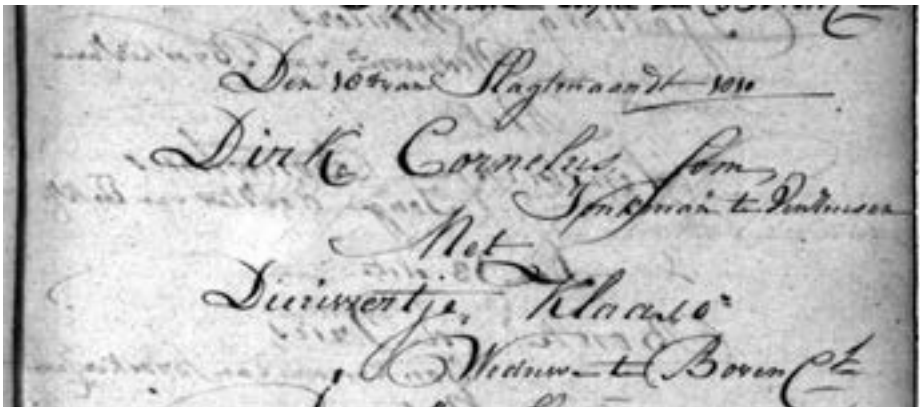 Den 10de van Slagtmaandt 1810
Dirk Cornelus Som
Jonkman te Venhuisen
Met
Dieuwertje Klaas
Weduwe te Boven